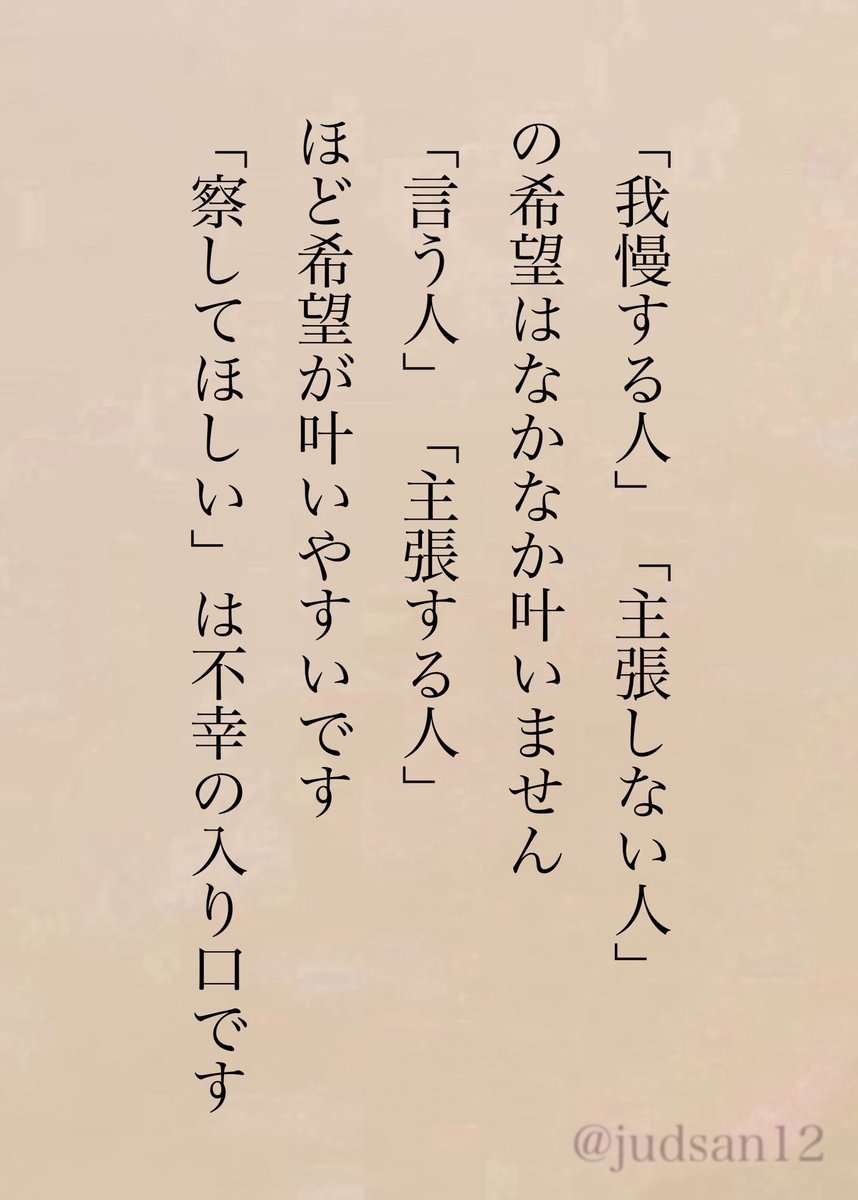 「我慢する人」「主張しない人」
の希望はなかなか叶いません
「言う人」「主張する人」
ほど希望が叶いやすいです
「察してほしい」は不幸の入り口です
@judsan12